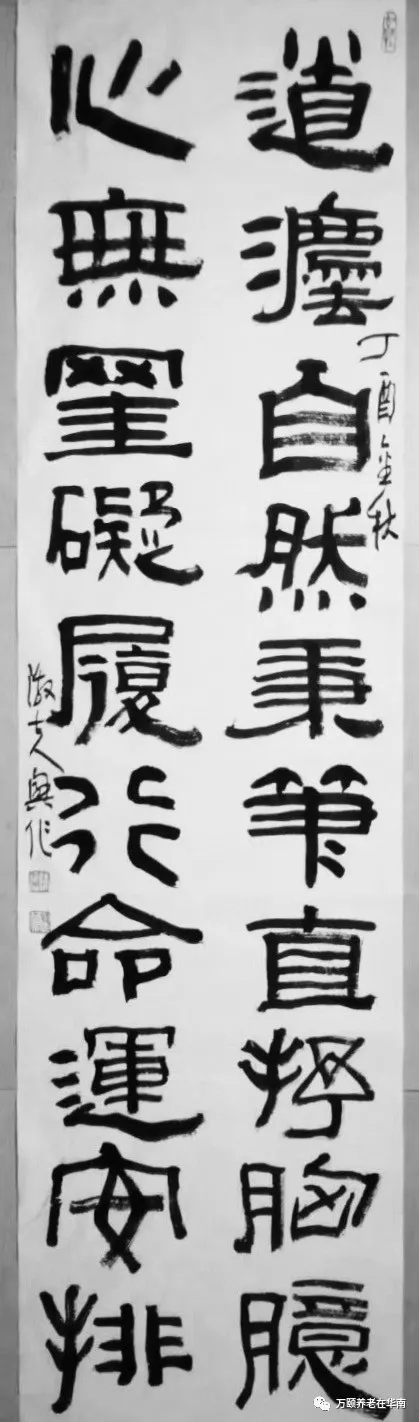 丁酉金秋
道灋自然秉筆直抒胸臆
心無罣礙履行命運安排
興作
万颐养老在华南